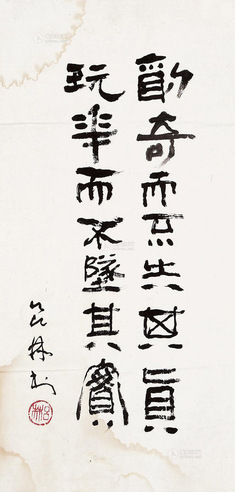 酌奇而不失其眞
玩華而不墜其實